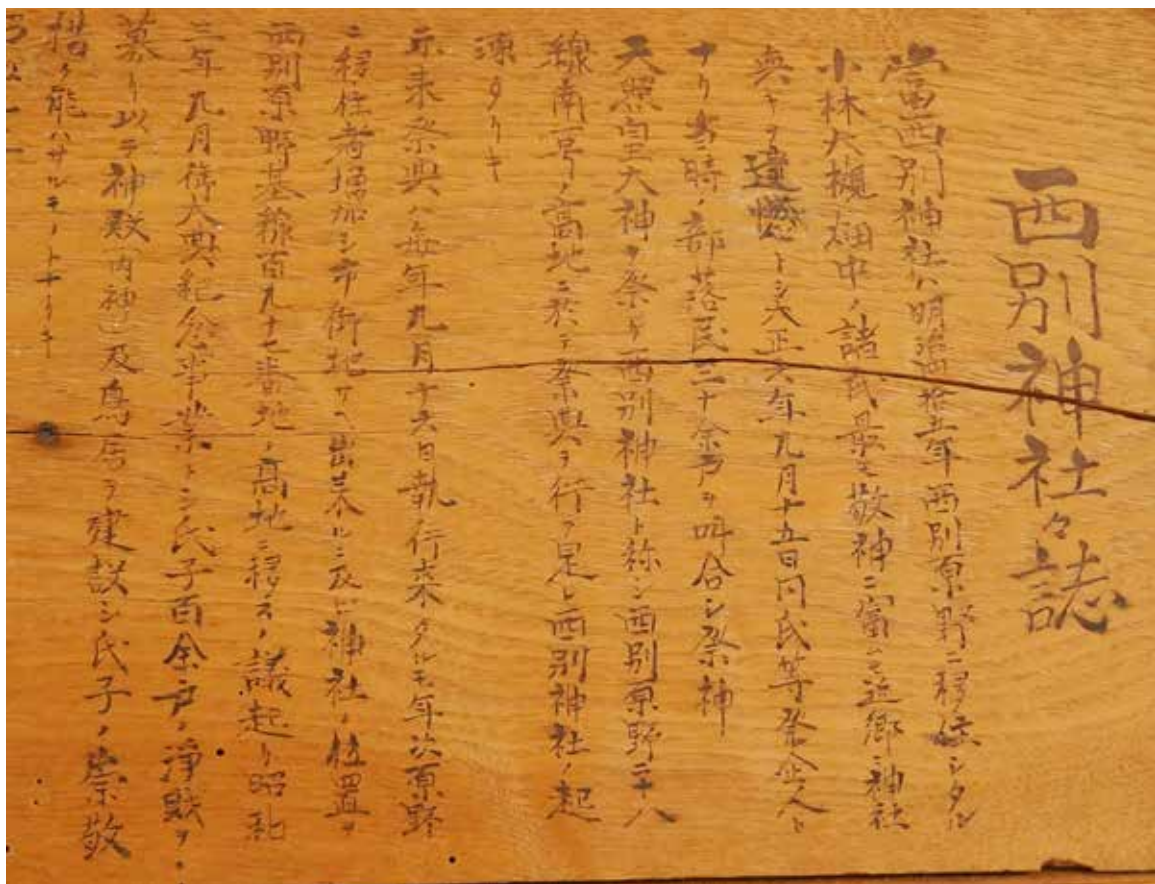 西別神社々誌
当西別神社ハ明治四拾五年西別原野ニ移住シタル
小林大槻畑中ノ諸氏最モ敬神ニ富ムモ近郷ニ神社
無キヲ遺憾トシ大正六年九月十五日同氏等発企人ト
ナリ当時ノ部落民三十余戸ヲ叫合シ祭神
天照皇大神ヲ祭リ西別神社ト称シ西別原野二十八
線南一号ノ高地ニ於テ祭典ヲ行フ是レ西別神社ノ起
源ナリキ
尓来祭典ハ毎年九月十六日執行来タルモ年次原野
ニ移住者増加シ市街地サヘ出来ルニ及ビ神社ノ位置ヲ
西別原野基線百九十七番地ノ高地ニ移スノ議起リ昭和
三年九月御大典紀念事業トシ氏子百余戸ノ浄財ヲ
募リ以テ神殿(内神)及鳥居ヲ建設シ氏子ノ崇敬
措ク能ハサルモノトナリキ